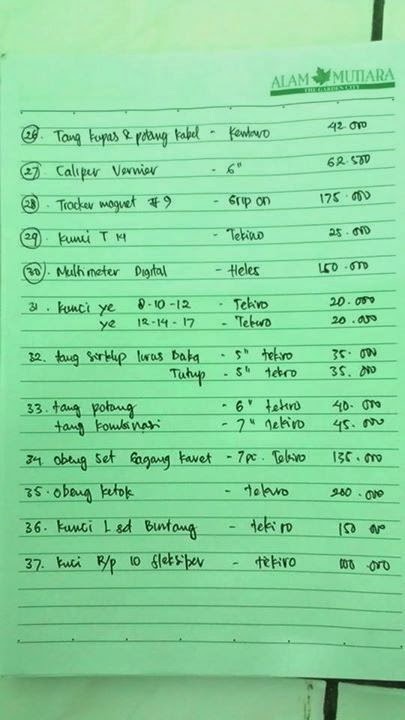 ALAM MUTIARA
THE GARDEN CITY
26. Tang kupas & potong kabel - Kenmaro 42.000
27. Caliper Vernier - 6" 62.500
28. Tracker magnet # 9 - Grip on 175.000
29. Kunci T 14 - Tekiro 25.000
30. Multimeter Digital - Heles 150.000
31. Kunci ye 8-10-12 - Tekiro 20.000
ye 12-14-17 - Tekiro 20.000
32. tang Sirklip lurus Buka - 5" tekiro 35.000
Tutup - 5" tekiro 35.000
33. tang potong - 6" tekiro 40.000
tang kombinasi - 7" tekiro 45.000
34. Obeng Set Gagang karet - 7pc. Tekiro 135.000
35. Obeng ketok - tekiro 200.000
36. Kunci L set Bintang - tekiro 150.000
37. Kuci R/p 10 fleksibel - tekiro 100.000